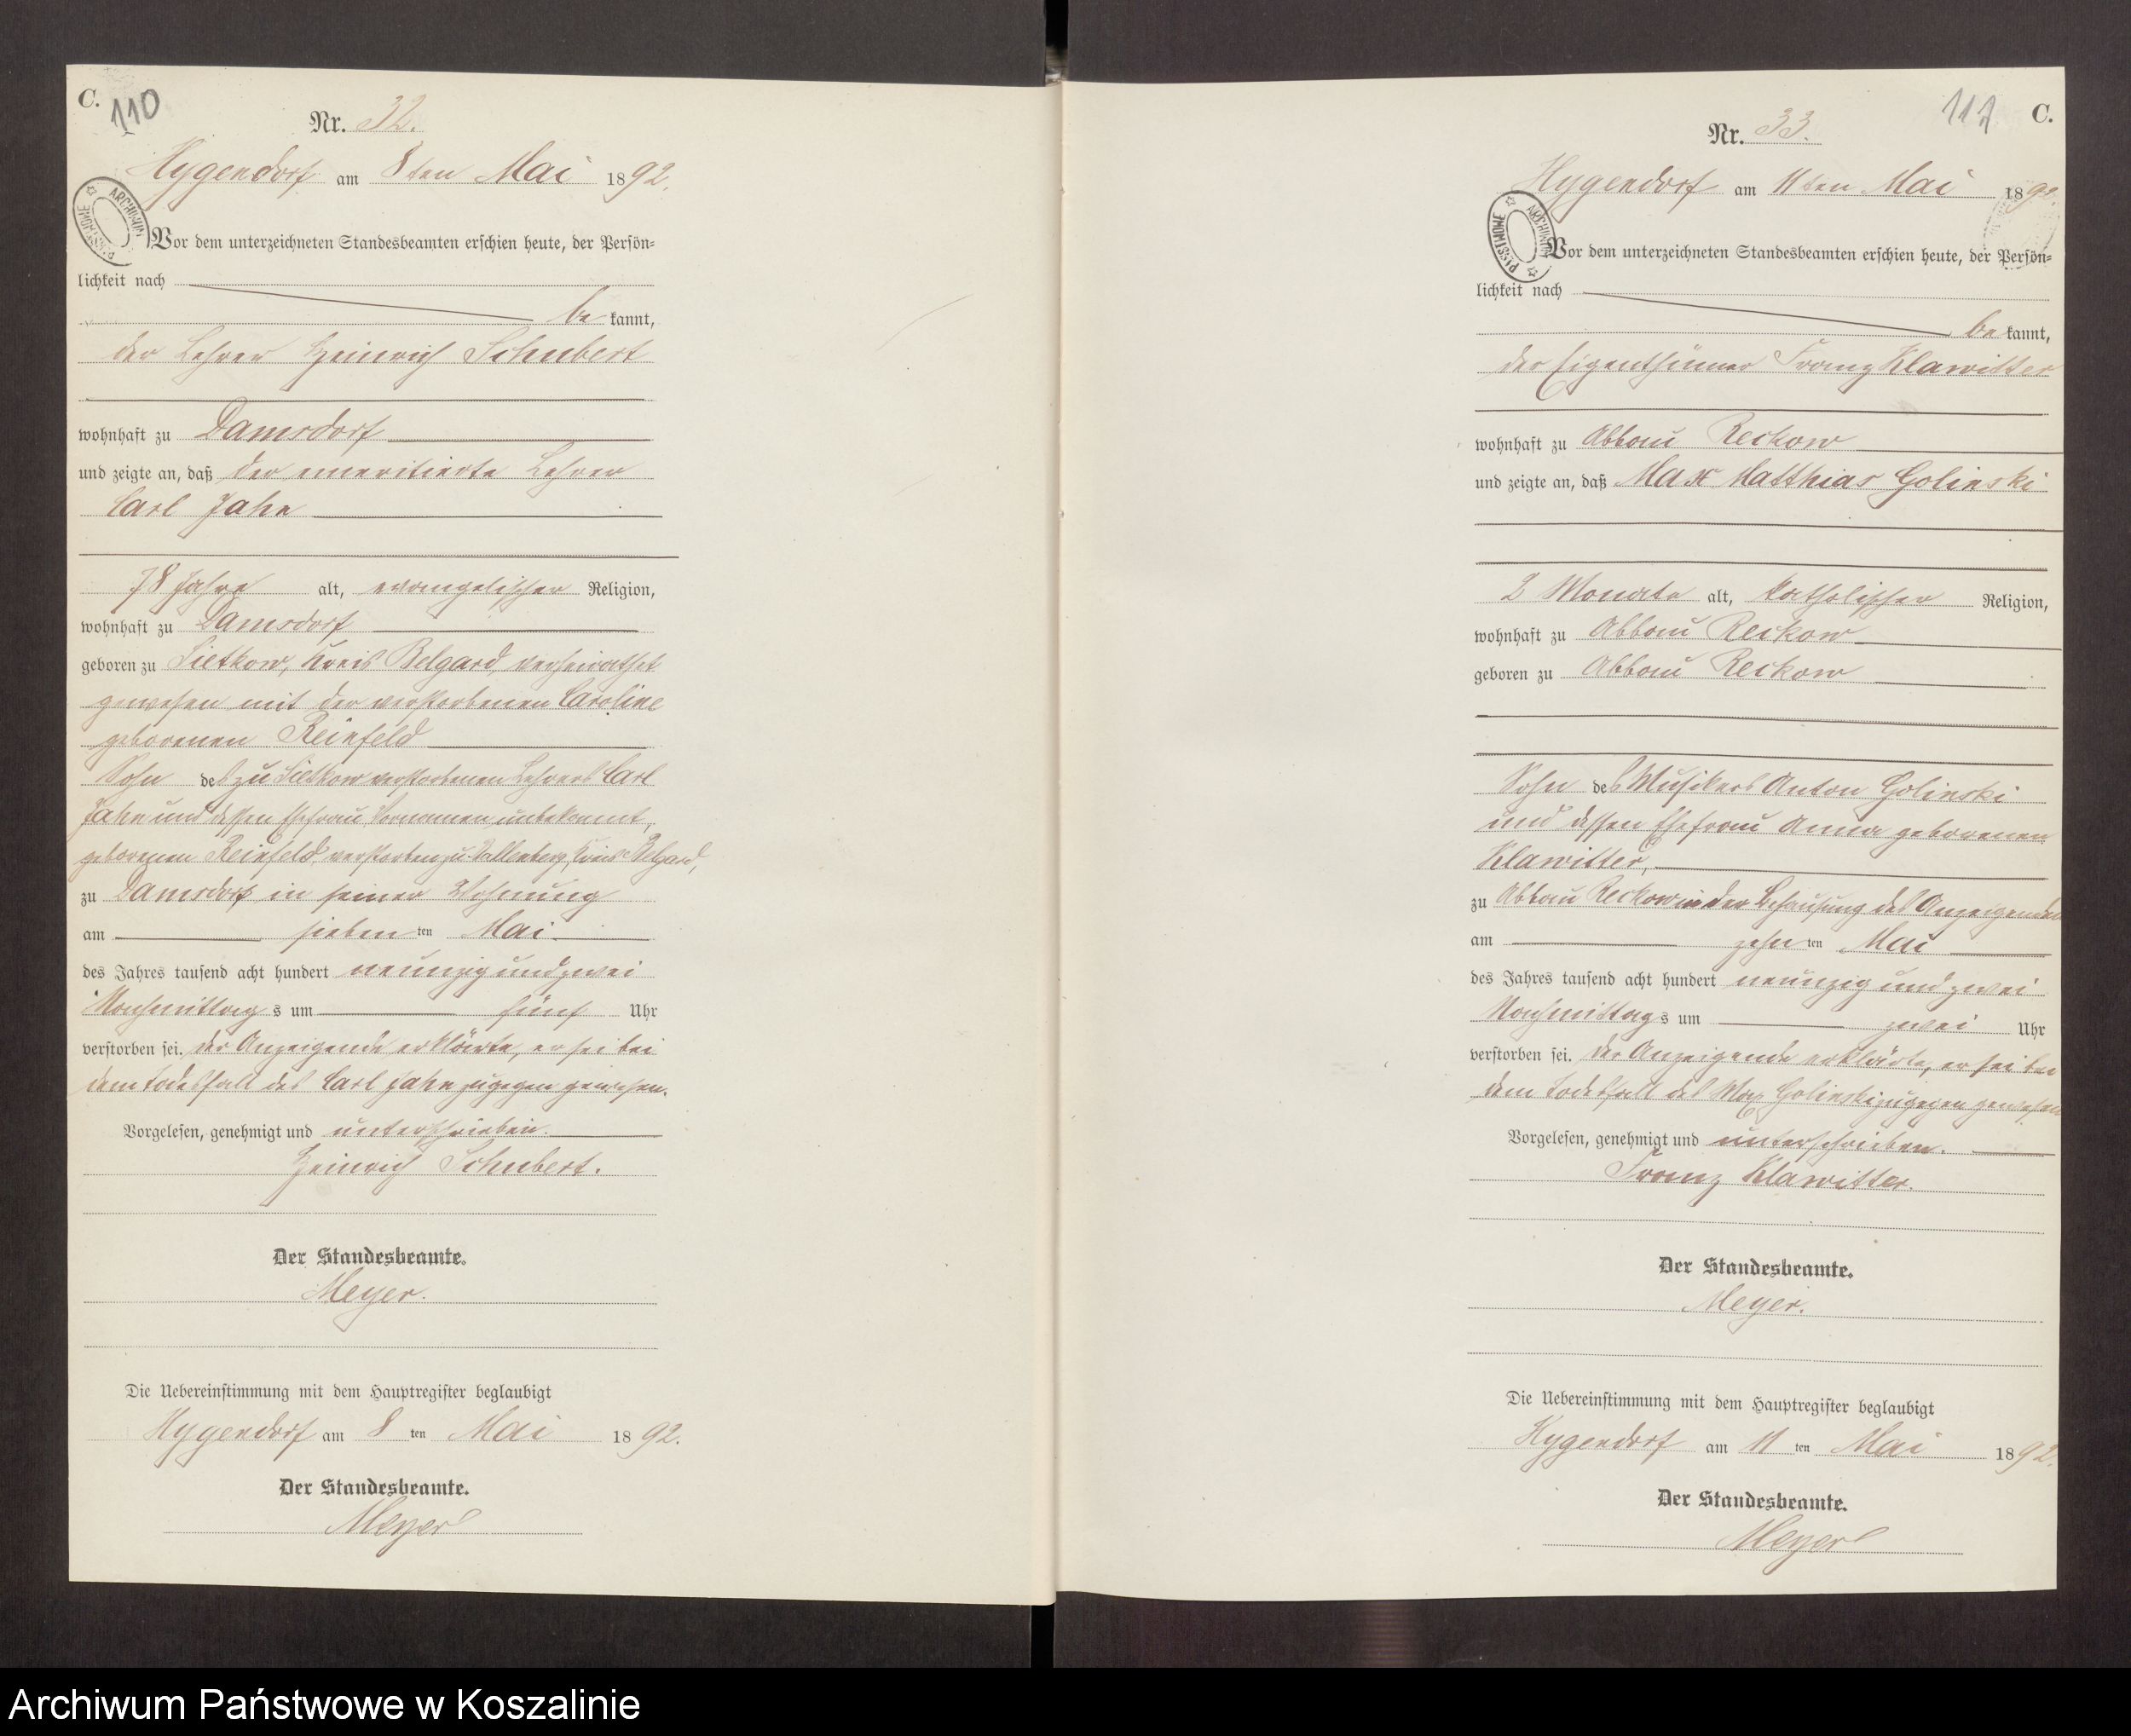 C.
110
Nr. 32.
Hygendorf am 8ten Mai 1892.
Vor dem unterzeichneten Standesbeamten erschien heute, der Persön-
lichkeit nach
be kannt,
der Lehrer Heinrich Schubert
wohnhaft zu Damsdorf
und zeigte an, daß der emeritierte Lehrer
Carl Jahn
78 Jahre alt, evangelischer Religion,
wohnhaft zu Damsdorf
geboren zu Sietkow, Kreis Belgard, verheirathet
gewesen mit der verstorbenen Caroline
geborenen Reinfeld
Sohn des zu Sietkow verstorbenen Lehrers Carl
Jahn und dessen Ehefrau, Vornamen unbekannt,
geborenen Reinfeld, verstorben zu Kreis Belgard,
zu Damsdorf in seiner Wohnung
am siebenten Mai
des Jahres tausend acht hundert neunzig und zwei
Nachmittags um fünf Uhr
verstorben sei. Der Anzeigende erklärte, er sei bei
dem Todesfall des Carl Jahn zugegen gewesen.
Vorgelesen, genehmigt und unterschrieben.
Heinrich Schubert.
Der Standesbeamte.
Meyer.
Die Uebereinstimmung mit dem Hauptregister beglaubigt
Hygendorf am 8ten Mai 1892.
Der Standesbeamte.
Meyer
ARCHIWUM PAŃSTWOWE
111
C.
Nr. 33.
Hygendorf am 11ten Mai 1892.
Vor dem unterzeichneten Standesbeamten erschien heute, der Persön-
lichkeit nach
be kannt,
der Eigenthümer Franz Klawitter
wohnhaft zu Abbau Reckow
und zeigte an, daß Max Matthias Golinski
2 Monate alt, katholischer Religion,
wohnhaft zu Abbau Reckow
geboren zu Abbau Reckow
Sohn des Musikers Anton Golinski
und dessen Ehefrau Anna geborenen
Klawitter,
zu Abbau Reckow in der Behausung des Anzeigenden
am zehnten Mai
des Jahres tausend acht hundert neunzig und zwei
Nachmittags um zwei Uhr
verstorben sei. Der Anzeigende erklärte, er sei bei
dem Todesfall des Max Golinski zugegen gewesen
Vorgelesen, genehmigt und unterschrieben.
Franz Klawitter.
Der Standesbeamte.
Meyer.
Die Uebereinstimmung mit dem Hauptregister beglaubigt
Hygendorf am 11ten Mai 1892.
Der Standesbeamte.
Meyer
ARCHIWUM PAŃSTWOWE
Archiwum Państwowe w Koszalinie